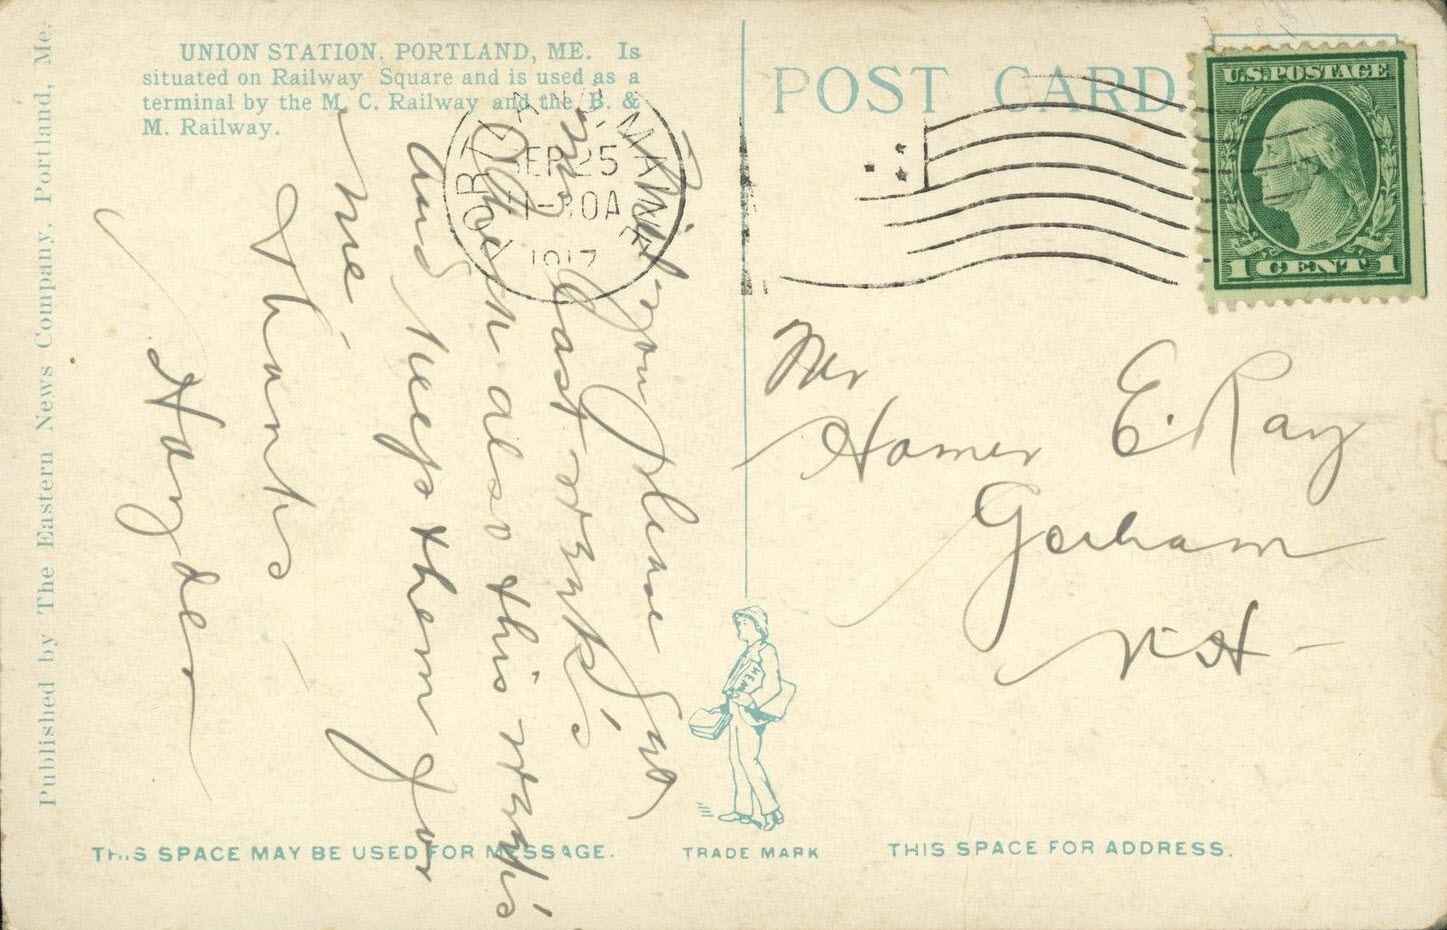 UNION STATION, PORTLAND, ME. Is
situated on Railway Square and is used as a
terminal by the M. C. Railway and the B. &
M. Railway.
Published by The Eastern News Company, Portland, Me.
POST CARD
U.S. POSTAGE
1 CENT 1
PORTLAND, MAINE
SEP 25
11-30A
1917
Will you please get
my last week's
check also this week's
and keep them for
me
Thanks
Hayden
Mr
Homer E. Ray
Gorham
N.H.
NEWS
THIS SPACE MAY BE USED FOR MESSAGE.
TRADE MARK
THIS SPACE FOR ADDRESS.